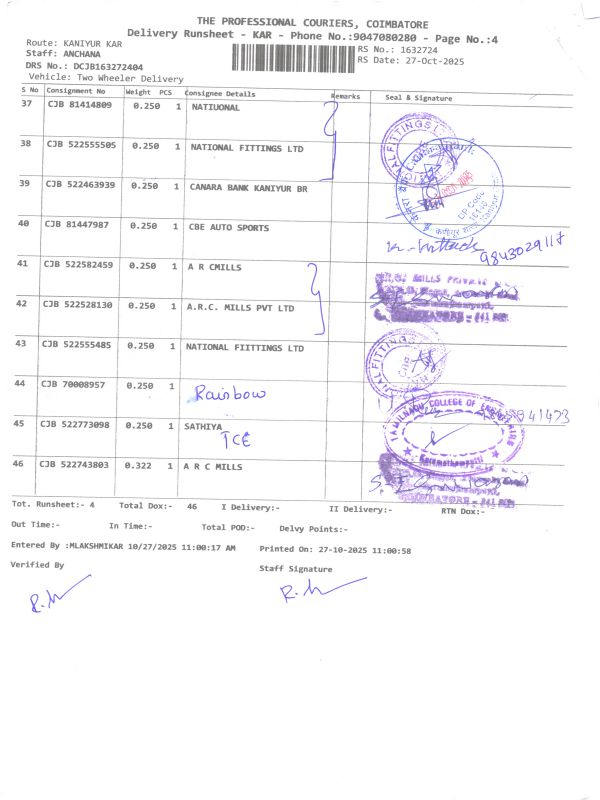 THE PROFESSIONAL COURIERS, COIMBATORE
Delivery Runsheet - KAR - Phone No.:9047080280 - Page No.:4
Route: KANIYUR KAR
RS No.: 1632724
Staff: ANCHANA
RS Date: 27-Oct-2025
DRS No.: DCJB163272404
Vehicle: Two Wheeler Delivery
S No Consignment No Weight PCS Consignee Details Remarks Seal & Signature
37 CJB 81414809 0.250 1 NATIUONAL
38 CJB 522555505 0.250 1 NATIONAL FITTINGS LTD
39 CJB 522463939 0.250 1 CANARA BANK KANIYUR BR
40 CJB 81447987 0.250 1 CBE AUTO SPORTS
9843029117
41 CJB 522582459 0.250 1 A R CMILLS
42 CJB 522528130 0.250 1 A.R.C. MILLS PVT LTD
43 CJB 522555485 0.250 1 NATIONAL FIITTINGS LTD
44 CJB 70008957 0.250 1 Rainbow
45 CJB 522773098 0.250 1 SATHIYA
TCE
TAMILNADU COLLEGE OF ENGINEERING
46 CJB 522743803 0.322 1 A R C MILLS
Tot. Runsheet:- 4 Total Dox:- 46 I Delivery:- II Delivery:- RTN Dox:-
Out Time:- In Time:- Total POD:- Delvy Points:-
Entered By :MLAKSHMIKAR 10/27/2025 11:00:17 AM Printed On: 27-10-2025 11:00:58
Verified By
Staff Signature